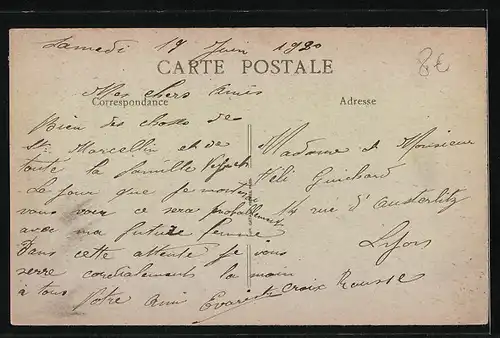 Samedi 19 Juin 1920
8€
CARTE POSTALE
Correspondance
Adresse
Mes chers Amis
Bien des choses de
St Marcellin et de
toute la famille
Le jour que je monterai
vous voir ce sera probablement
avec ma future femme
Dans cette attente je vous
serre cordialement la main
à tous Votre Ami Evariste
Madame et Monsieur
Héli Guichard
14 rue d'Austerlitz
Lyon
Croix Rousse